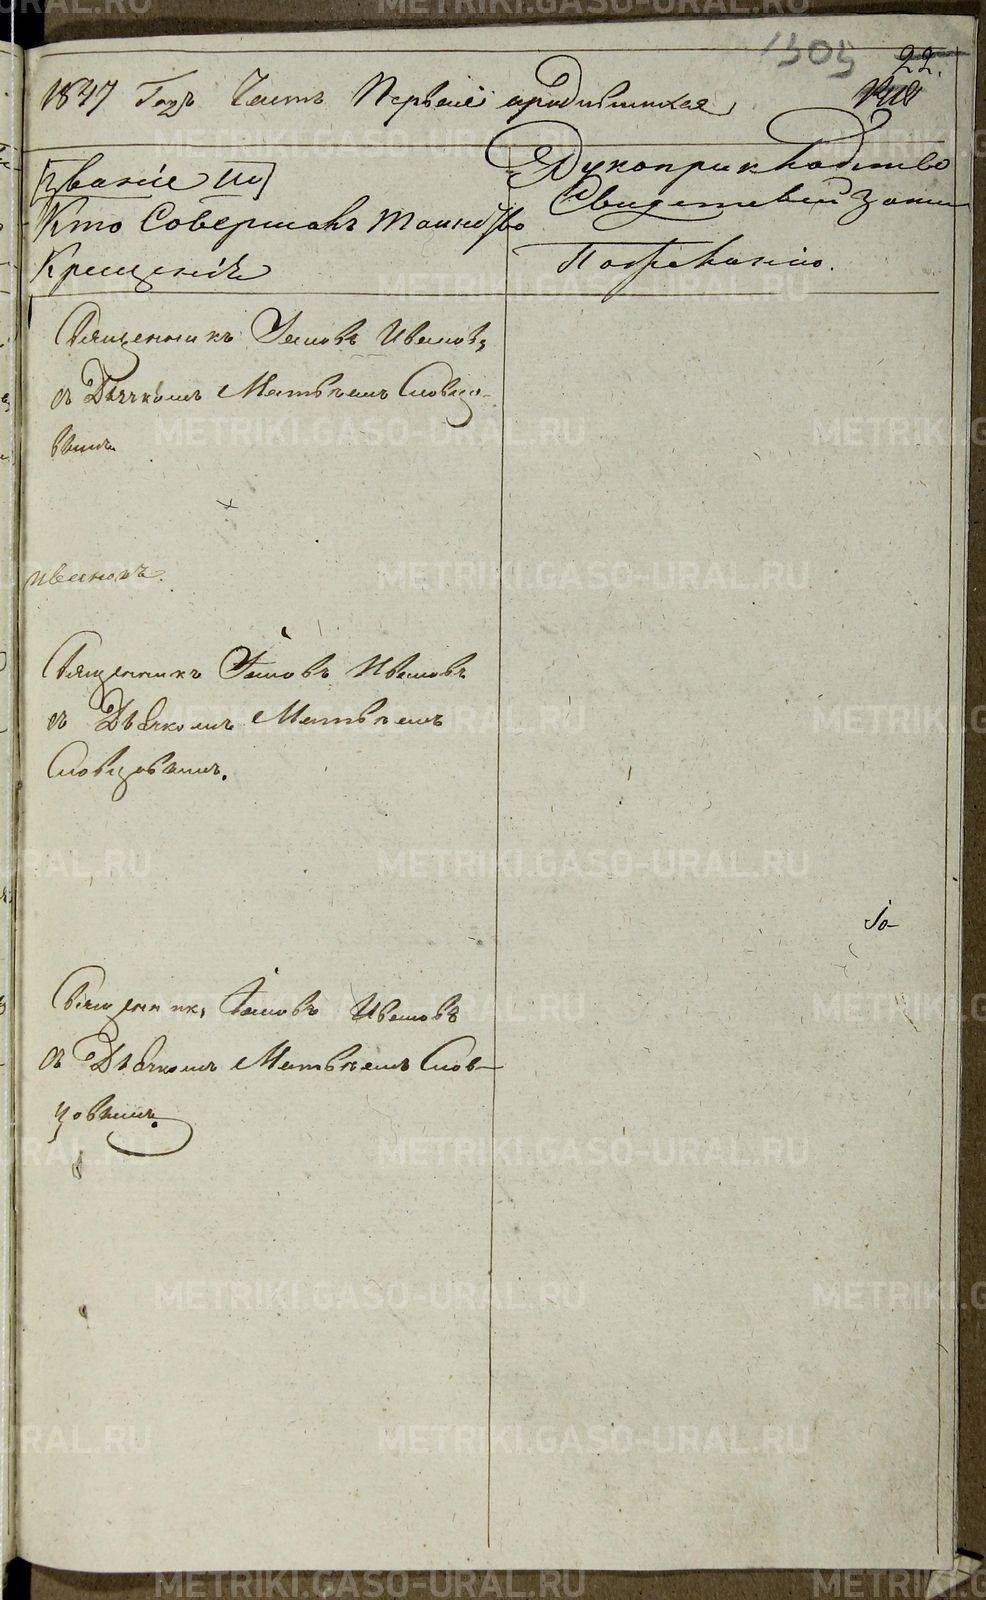 1305
22.
1847 Годъ Часть Первая о родившихся
Званіе, Им
Кто Совершалъ Таинство
Крещенія
Рукоприкладство
Свидетелей Запи
По Желанію.
Священникъ Іаковъ Ивановъ,
съ Дьячкомъ Матвѣемъ Словцо-
вымъ
Ивановъ.
Священникъ Іаковъ Ивановъ
съ Дьячкомъ Матвѣемъ
Словцовымъ.
Священник, Іаковъ Ивановъ
съ Дьячкомъ Матвѣемъ Слов-
цовымъ.
METRIKI.GASO-URAL.RU